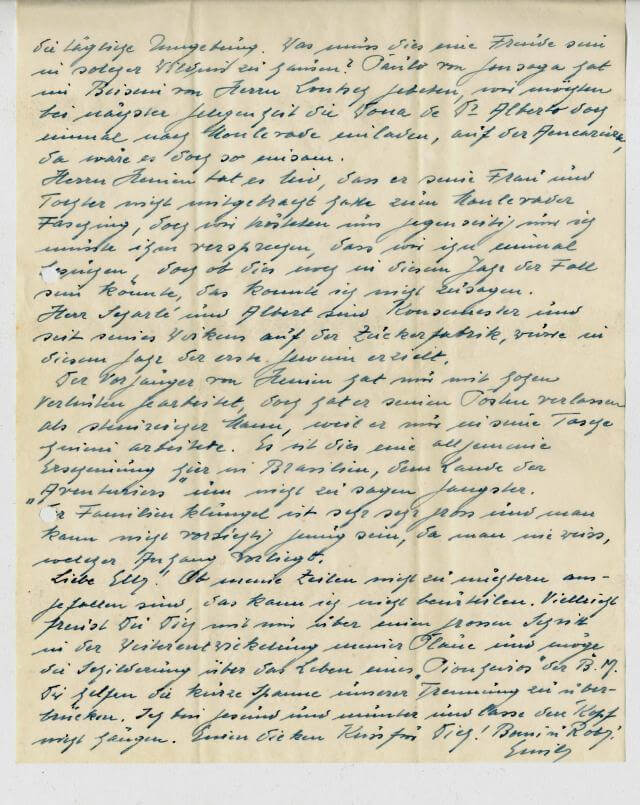 die tägliche Umgebung. Was muss dies eine Freude sein
in solcher Wildnis zu hausen? Paulo von Gonzaga hat
im Beisein von Herrn gebeten, wir möchten
bei nächster Gelegenheit die Dona de Dr Alberto doch
einmal nach Monlevade einladen, auf der
da wäre es doch so einsam.
Herrn tat es leid, dass er seine Frau und
Tochter nicht mitgebracht habe zum Monlevader
Fasching, doch wir trösteten uns gegenseitig und ich
musste ihm versprechen, dass wir ihn einmal
besuchen, doch ob dies noch in diesem Jahr der Fall
sein könnte, das konnte ich nicht zusagen.
Herr und Albert sind Konsemester und
seit seines Wirkens auf der Zuckerfabrik, wurde in
diesem Jahr der erste Gewinn erzielt.
Der Vorgänger von hat nur mit hohen
Verlusten gearbeitet, doch hat er seinen Posten verlassen
als steinreicher Mann, weil er nur in seine Tasche
hinein arbeitete. Es ist dies eine allgemeine
Erscheinung hier in Brasilien, dem Lande der
"Aventuriers" um nicht zu sagen Gangster.
Familienklüngel ist sehr sehr gross und man
kann nicht vorsichtig genug sein, da man nie weiss,
welcher Anhang vorliegt.
Liebe Elly! Ob meine Zeilen nicht zu nüchtern aus-
gefallen sind, das kann ich nicht beurteilen. Vielleicht
freust Du Dich mit mir über einen grossen Schritt
in der Weiterentwickelung meiner Pläne und möge
die Schilderung über das Leben eines "Pioneiros" der B.M.
Dir helfen die kurze Spanne unserer Trennung zu über-
brücken. Ich bin gesund und munter und lasse den Kopf
nicht hängen. Einen dicken Kuss für Dich!